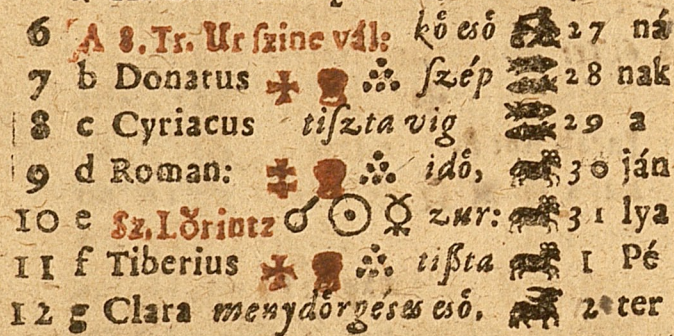 6 A 8. Tr. Ur ſzine vál: kő eső 27 ná
7 b Donatus ſzép 28 nak
8 c Cyriacus tiſzta vig 29 a
9 d Roman: idő, 30 ján
10 e Sz. Lőrintz ☌ ☉ ☿ zur: 31 lya
11 f Tiberius tißta 1 Pé
12 g Clara menydőrgéses eső. 2 ter